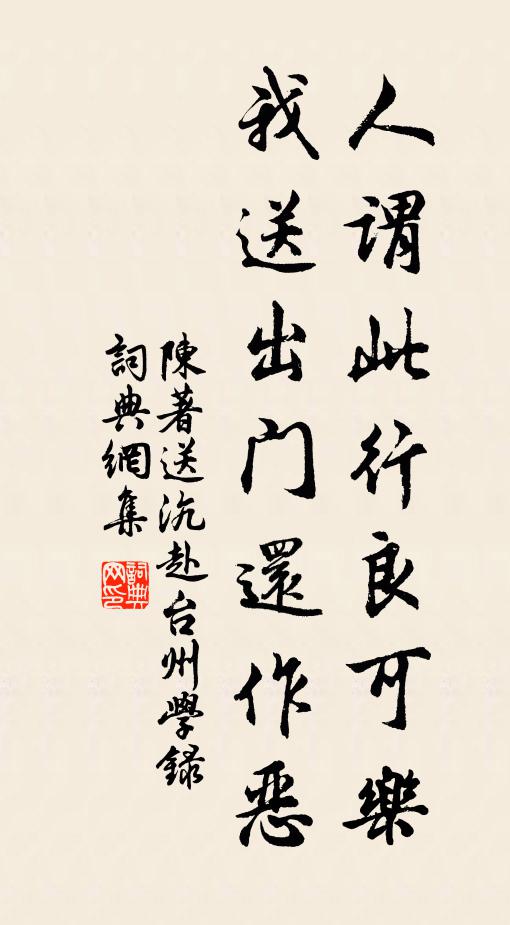 人謂此行良可樂
我送出門還作惡
陳著送沇赴台州學録
詞典網集
詞典
网印